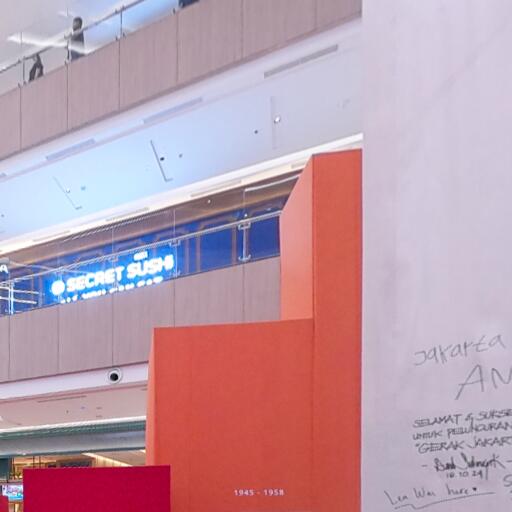 SECRET SUSHI
1945 - 1958
Jakarta
AN
SELAMAT & SUKSE
UNTUK PELUNCURAN
"GERAK JAKART
16.10.24
Lea Was here